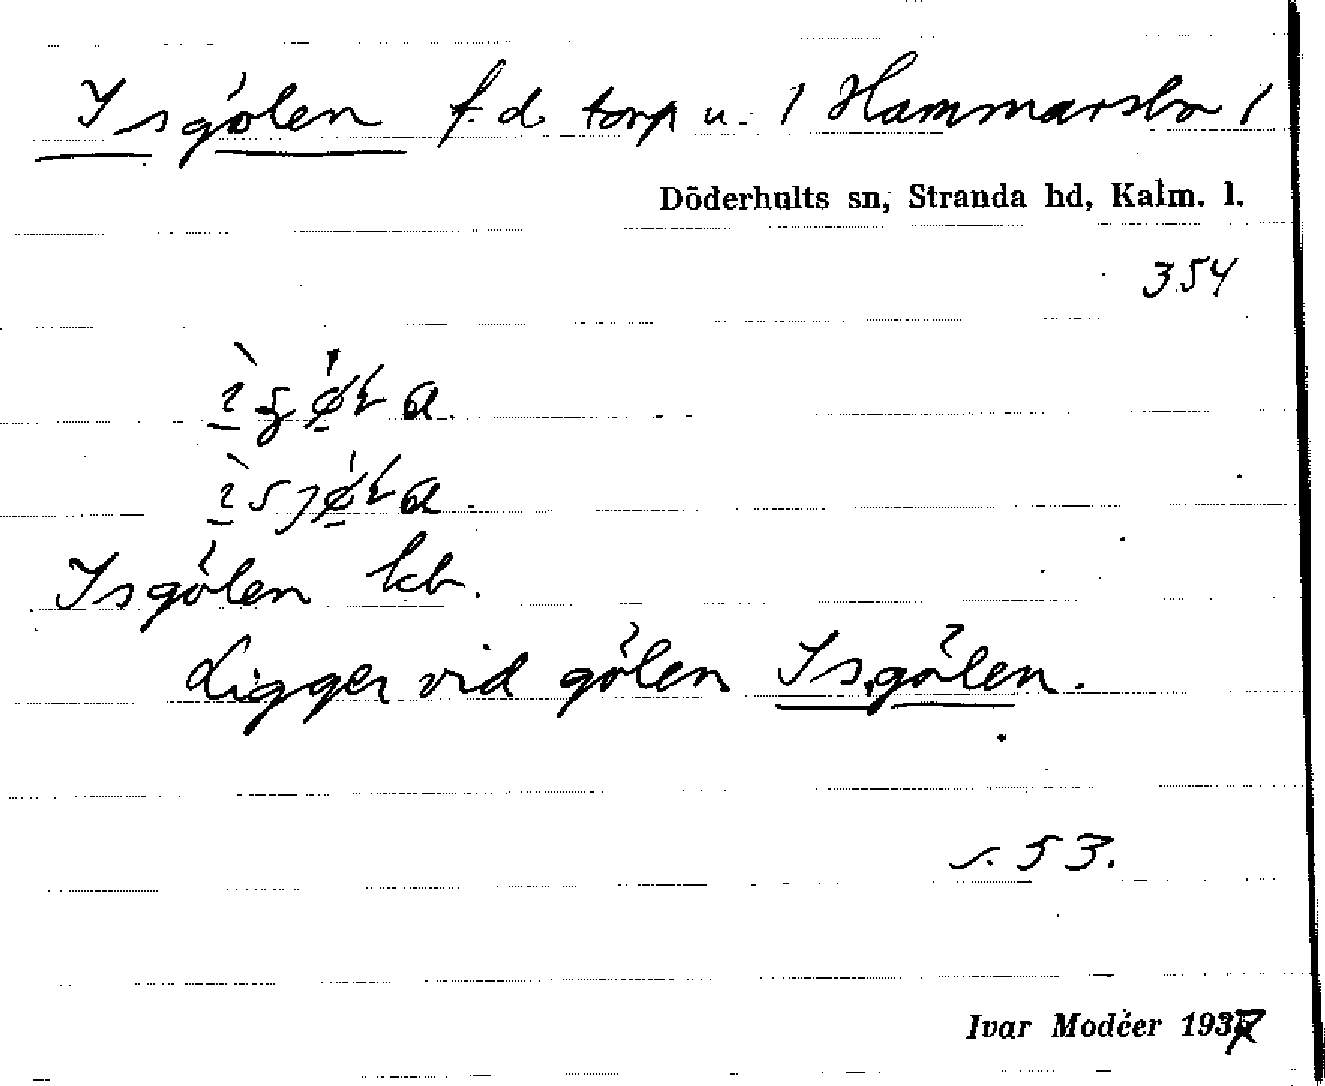 Isgölen f.d. torp u. / Hammarsbo /
Döderhults sn, Stranda hd, Kalm. l.
354
Isgölen kb.
Ligger vid gölen Isgölen.
s. 53.
Ivar Modéer 1937